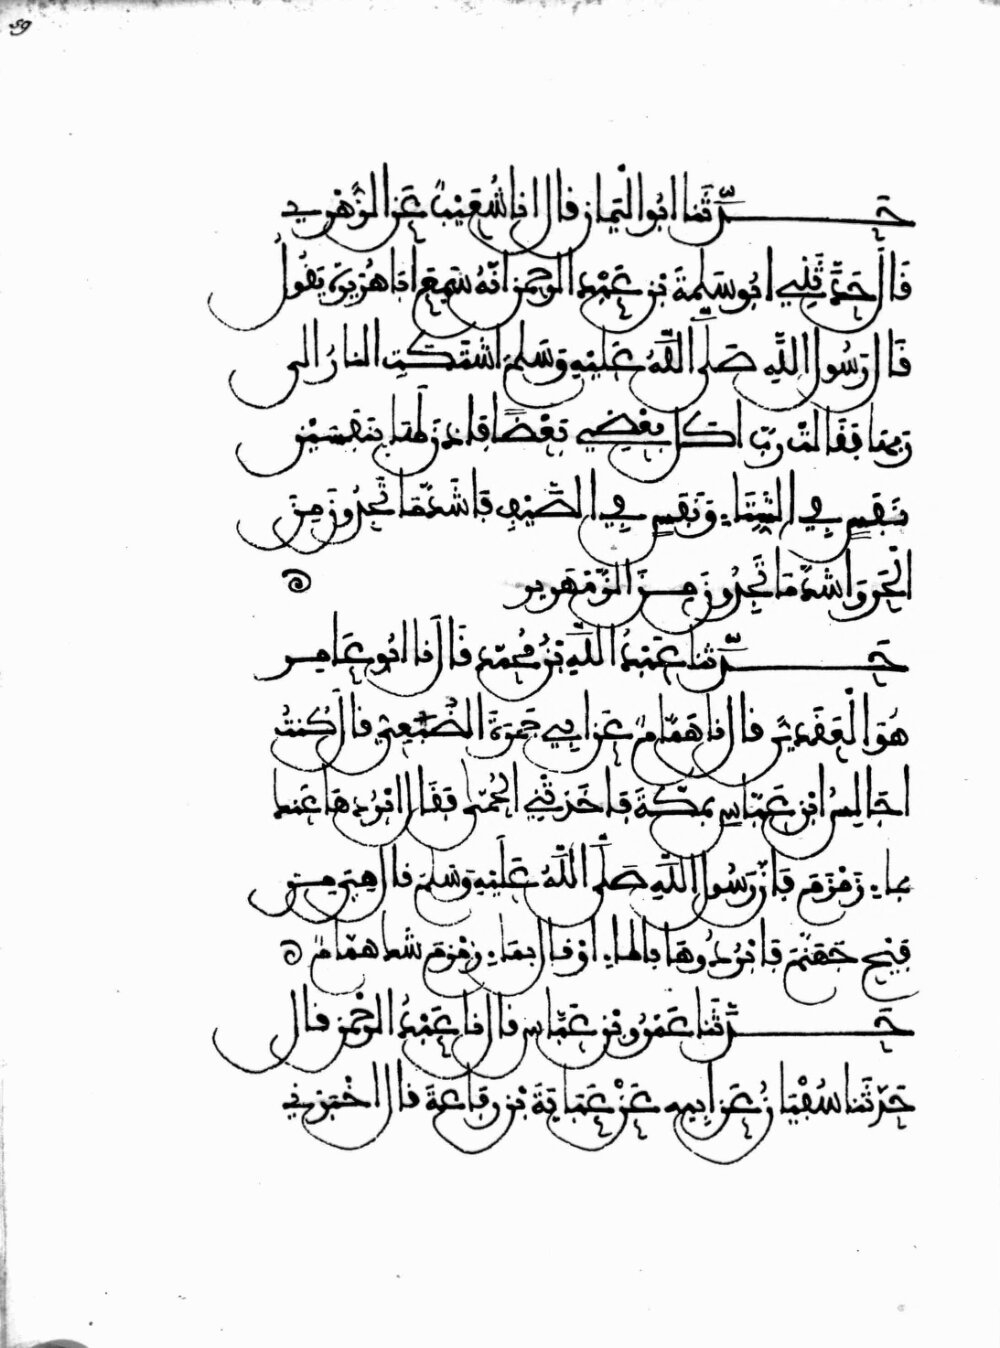 59
حَدَّثَنا ابُوا الْيَمان قال انا شُعَيْبٌ عَنِ الزُّهْرِي
قَالَ حَدَّثَنِي ابُو سَلمةَ بْن عَبْدِ الرحمن انّهُ سَمِعَ ابَا هُرَيْرَةَ يَقُولُ
قَالَ رَسُول اللَّهِ صَلَّى اللَّهُ عَلَيْهِ وَسَلَّمَ اشْتَكَتِ النارُ الى
رَبِّهَا فَقَالَتْ رَبِّ اكَلَ بَعْضِي بَعْضًا فَاذِنَ لَهَا بِنَفَسَيْنِ
نَفَسٍ فِي الشِّتَاءِ وَنَفَسٍ فِي الصَّيْفِ فَاشَدُّ مَا تَجِدُونَ مِنَ
الْحَرِّ وَاشدُّ مَا تَجِدُونَ مِنَ الزَّمْهَرِير
حَدَّثنا عَبْدُ اللَّهِ بْنُ مُحمّد قَالَ نا ابُو عَامِر
هُوَ الْعَقَدِيُّ قال نا هَمَّامٌ عَن ابِي جَمْرَةَ الضُّبَعِيِّ قال كُنتُ
اجَالِسُ ابْنَ عَبّاسٍ بمَكّةَ فَاخَذتْنِي الحُمّى فَقَال ابْرُدهَا عَنكَ
بماءِ زَمْزَمَ فَانَّ رَسُول اللَّهِ صَلَّى اللَّهُ عَلَيْهِ وَسَلَّمَ قال هِيَ مِن
فَيْحِ جَهَنَّمَ فَابْرُدُوهَا بالماءِ اوْ قال بمَاءِ زمْزمَ شَكَّ همّامٌ
حَدَّثَنا عَمْرُو بْن عَبَّاسٍ قال نا عَبْدُ الرَّحْمن قال
حَدّثَنا سُفْيَانُ عَن ابِيهِ عَنْ عَبَايَةَ بْن رِفَاعَةَ قال اخْبَرَنِي